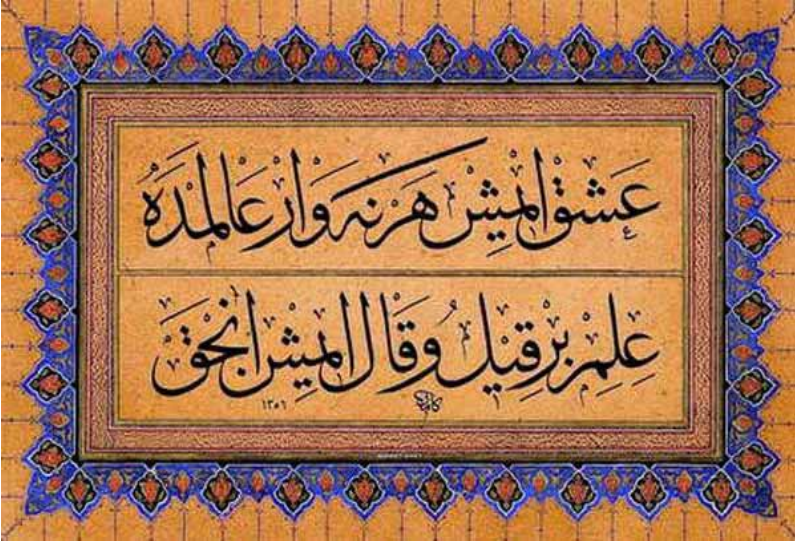 عشق ایمیش هر نه وار عالمده
علم بر قیل و قال ایمیش انجق
١٣٥٦